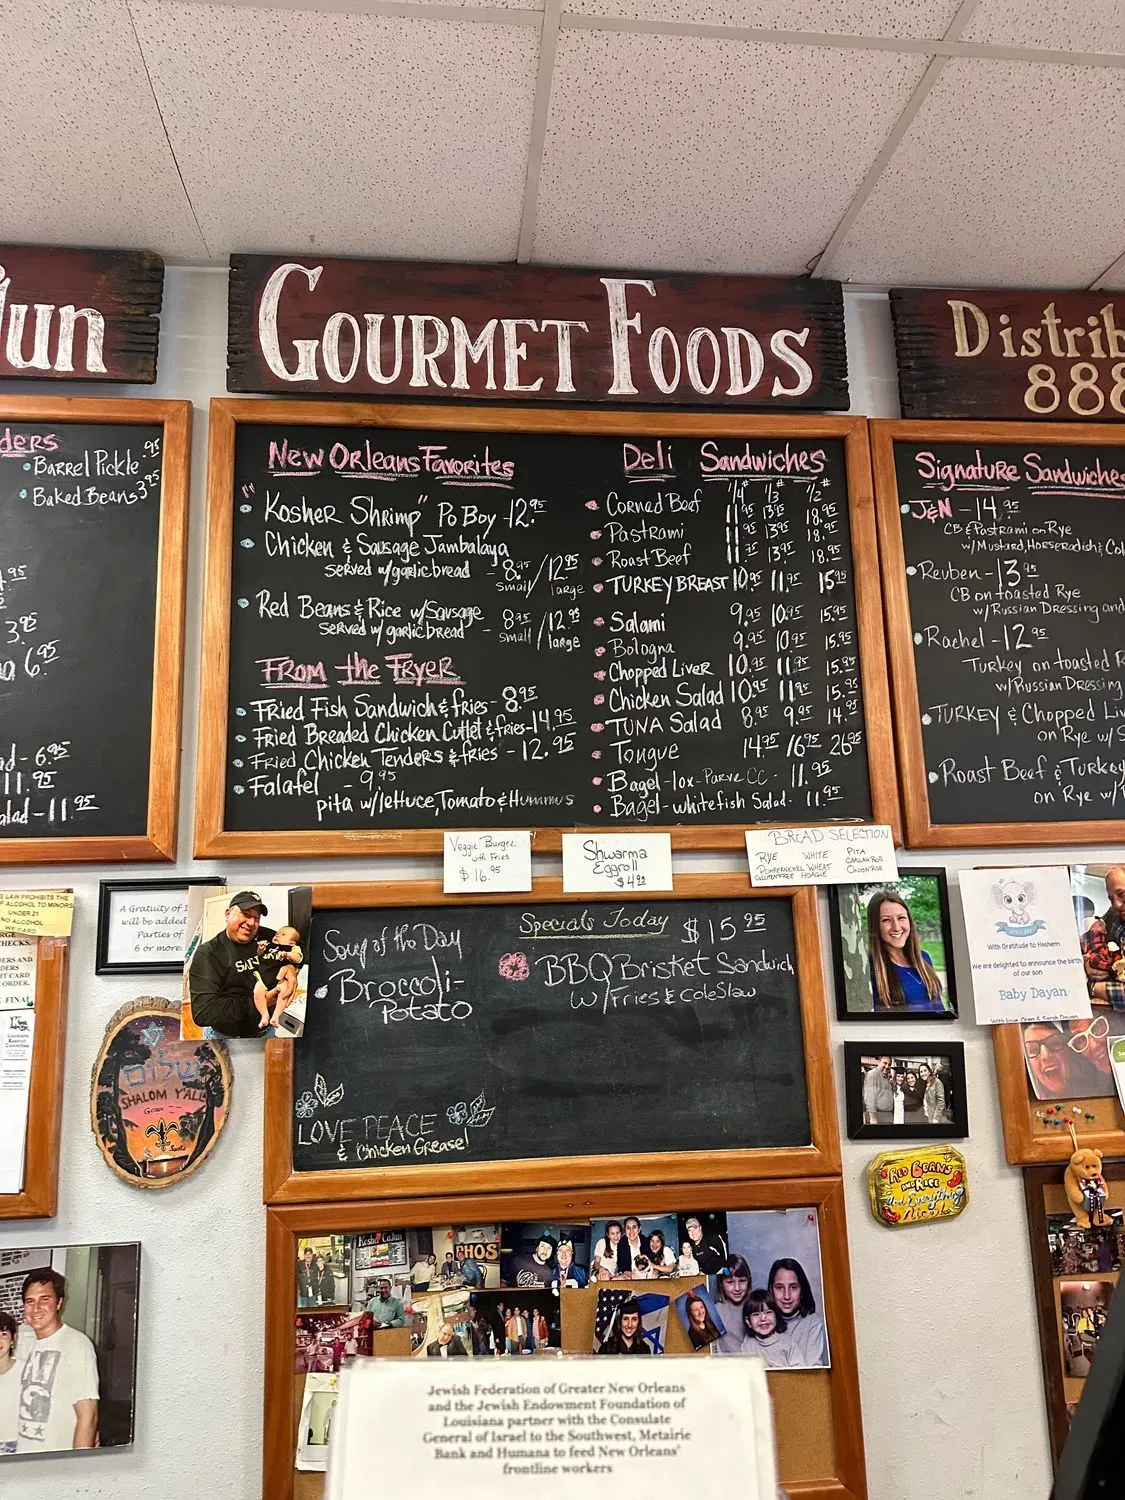 un
GOURMET FOODS
Distrib
888
ders
• Barrel Pickle .95
• Baked Beans 3.95
3.95
6.95
d - 6.95
11.95
alad - 11.95
New Orleans Favorites
• "Kosher Shrimp" Po Boy - 12.95
• Chicken & Sausage Jambalaya
served w/garlic bread - 8.95 / 12.95
small / large
• Red Beans & Rice w/Sausage
served w/ garlic bread - 8.95 / 12.95
small / large
From the Fryer
• Fried Fish Sandwich & fries - 8.95
• Fried Breaded Chicken Cutlet & fries - 14.95
• Fried Chicken Tenders & fries - 12.95
• Falafel - 9.95
pita w/lettuce, Tomato & Hummus
Deli Sandwiches
1/4# 1/3# 1/2#
• Corned Beef 11.95 13.95 18.95
• Pastrami 11.95 13.95 18.95
• Roast Beef 11.95 13.95 18.95
• TURKEY BREAST 10.95 11.95 15.95
• Salami 9.95 10.95 15.95
• Bologna 9.95 10.95 15.95
• Chopped Liver 10.95 11.95 15.95
• Chicken Salad 10.95 11.95 15.95
• TUNA Salad 8.95 9.95 14.95
• Tongue 14.95 16.95 26.95
• Bagel - lox - Parve CC - 11.95
• Bagel - whitefish Salad - 11.95
Signature Sandwiches
• J&N - 14.95
CB & Pastrami on Rye
w/ Mustard, Horseradish & Col
• Reuben - 13.95
CB on toasted Rye
w/ Russian Dressing and
• Rachel - 12.95
Turkey on toasted R
w/ Russian Dressing
• TURKEY & Chopped Liv
on Rye w/
• Roast Beef & Turkey
on Rye w/
Veggie Burger
with Fries
$16.95
Shwarma
Eggroll
$4.95
BREAD SELECTION
RYE WHITE PITA
PUMPERNICKEL WHEAT CHALAH ROLL
GLUTEN FREE HOAGIE ONION ROLL
Soup of the Day
• Broccoli-
Potato
LOVE PEACE
& Chicken Grease!
Specials Today $15.95
BBQ Brisket Sandwich
w/ Fries & Cole Slaw
E LAW PROHIBITS THE
F ALCOHOL TO MINORS
UNDER 21
NO ALCOHOL
WE CARD
A Gratuity of 1
will be added
Parties of
6 or more.
שלום
SHALOM Y'ALL
With Gratitude to Hashem
We are delighted to announce the birth
of our son
Baby Dayan
RED BEANS
AND RICE
And Everything
Nice
Jewish Federation of Greater New Orleans
and the Jewish Endowment Foundation of
Louisiana partner with the Consulate
General of Israel to the Southwest, Metairie
Bank and Humana to feed New Orleans'
frontline workers